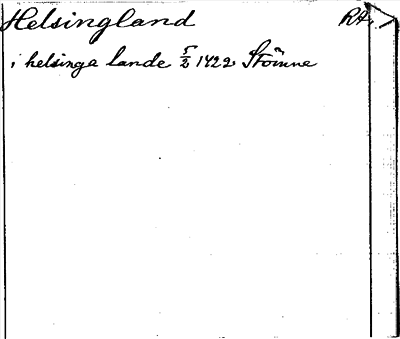 Helsingland RA.
i helsinga lande 5/2 1422 Stömne